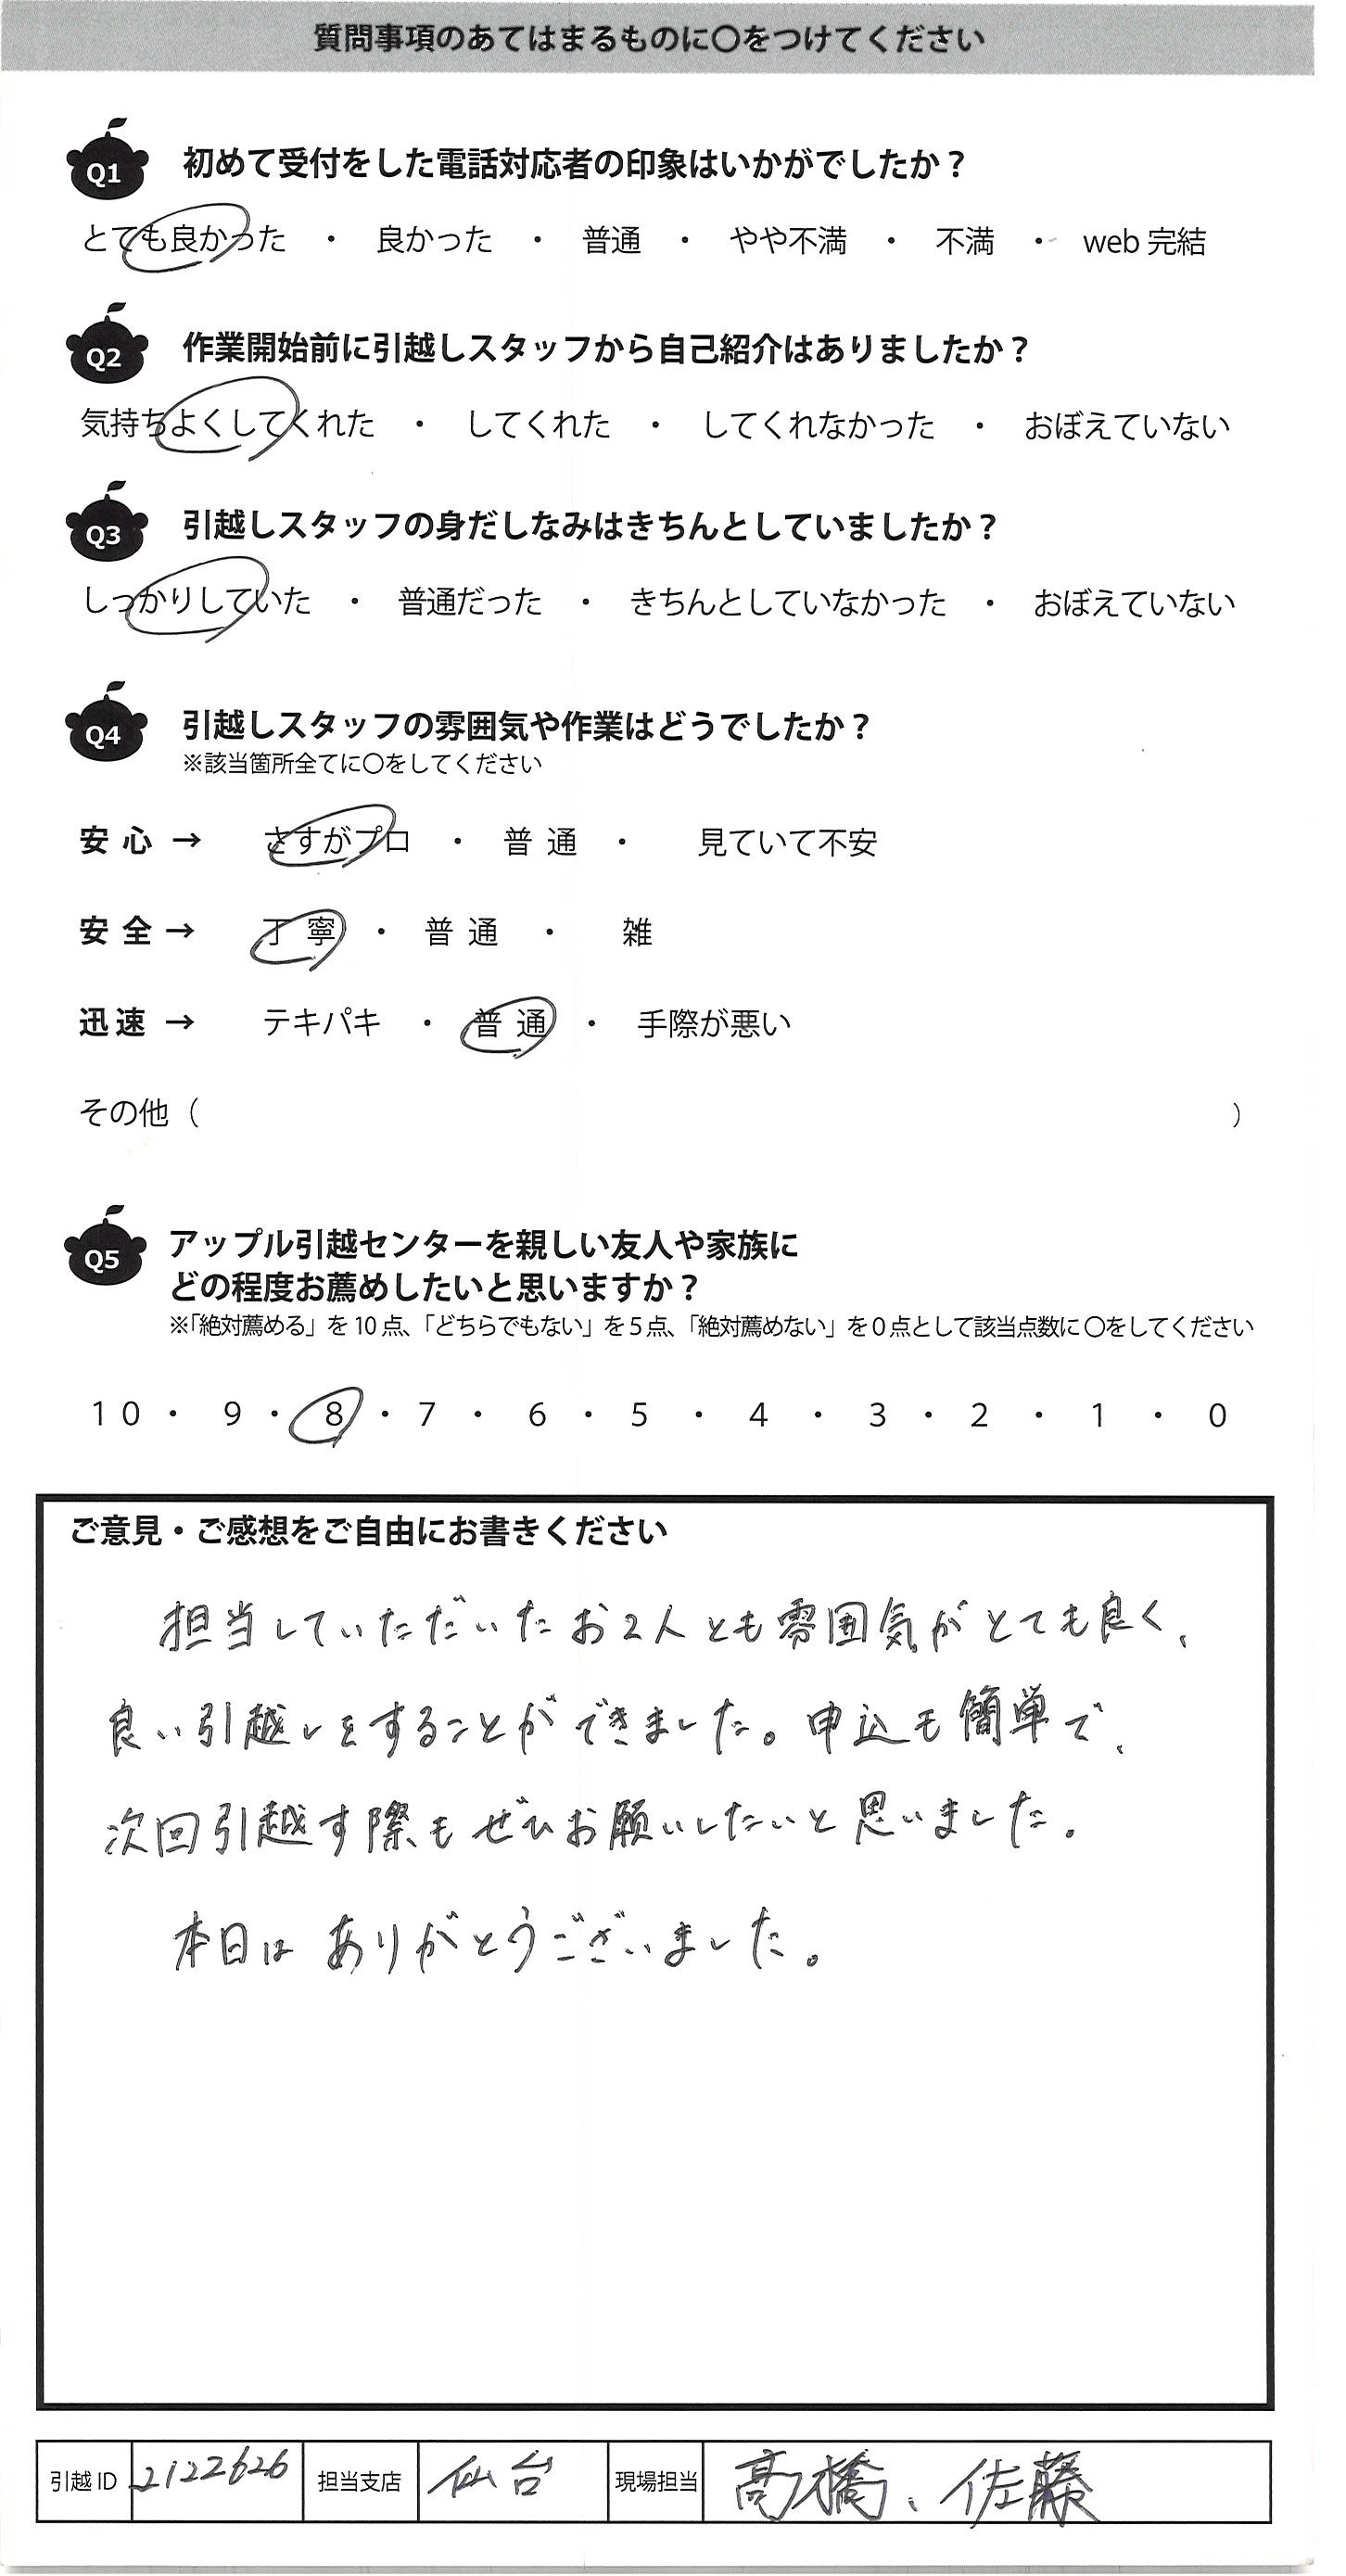 質問事項のあてはまるものに〇をつけてください
Q1 初めて受付をした電話対応者の印象はいかがでしたか？
とても良かった ・ 良かった ・ 普通 ・ やや不満 ・ 不満 ・ web 完結
Q2 作業開始前に引越しスタッフから自己紹介はありましたか？
気持ちよくしてくれた ・ してくれた ・ してくれなかった ・ おぼえていない
Q3 引越しスタッフの身だしなみはきちんとしていましたか？
しっかりしていた ・ 普通だった ・ きちんとしていなかった ・ おぼえていない
Q4 引越しスタッフの雰囲気や作業はどうでしたか？
※該当箇所全てに〇をしてください
安心 → さすがプロ ・ 普通 ・ 見ていて不安
安全 → 丁寧 ・ 普通 ・ 雑
迅速 → テキパキ ・ 普通 ・ 手際が悪い
その他（ ）
Q5 アップル引越センターを親しい友人や家族に
どの程度お薦めしたいと思いますか？
※「絶対薦める」を 10 点、「どちらでもない」を 5 点、「絶対薦めない」を 0 点として該当点数に 〇をしてください
10 ・ 9 ・ 8 ・ 7 ・ 6 ・ 5 ・ 4 ・ 3 ・ 2 ・ 1 ・ 0
ご意見・ご感想をご自由にお書きください
担当していただいたお2人とも雰囲気がとても良く、
良い引越しをすることができました。申込も簡単で、
次回引越す際もぜひお願いしたいと思いました。
本日は ありがとうございました。
引越 ID 2122626 担当支店 仙台 現場担当 髙橋、佐藤